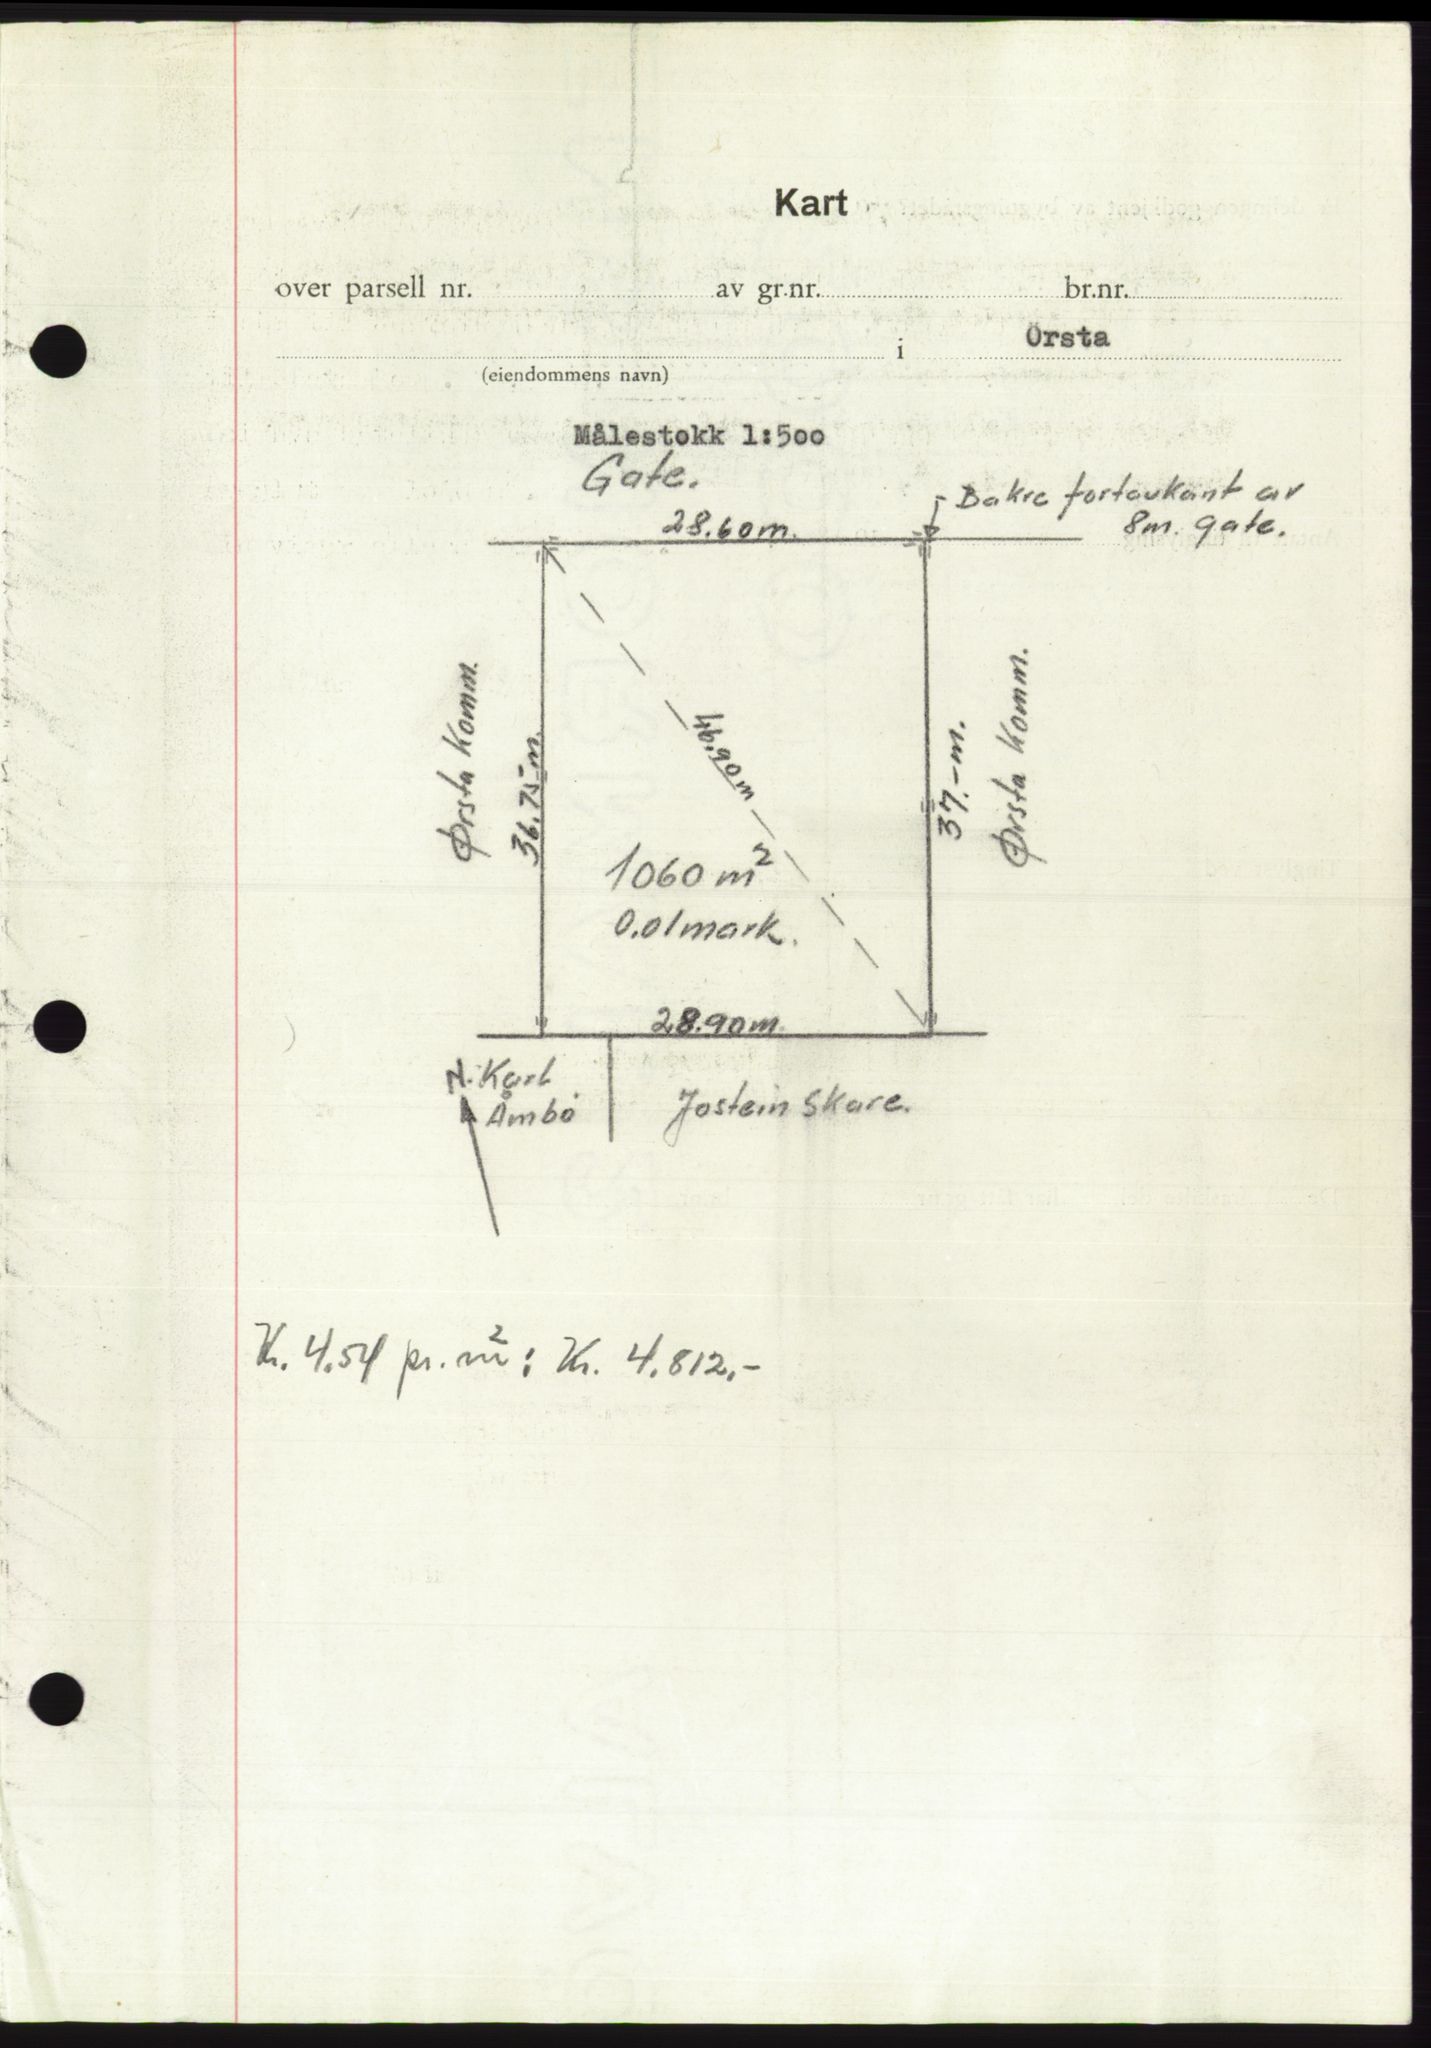 Kart
over parsell nr. av gr.nr. br.nr.
i Orsta
(eiendommens navn)
Målestokk 1:500
Gate.
Bakre fortaukant av
8m. gate.
28.60m.
Ørsta Komm.
36.75 m.
46.90 m
37.-m.
Ørsta Komm.
1060 m²
0.01mark.
28.90m.
N. Karl
Åmbø
Jostein Skare.
Kr. 4.54 pr. m²: Kr. 4.812.-